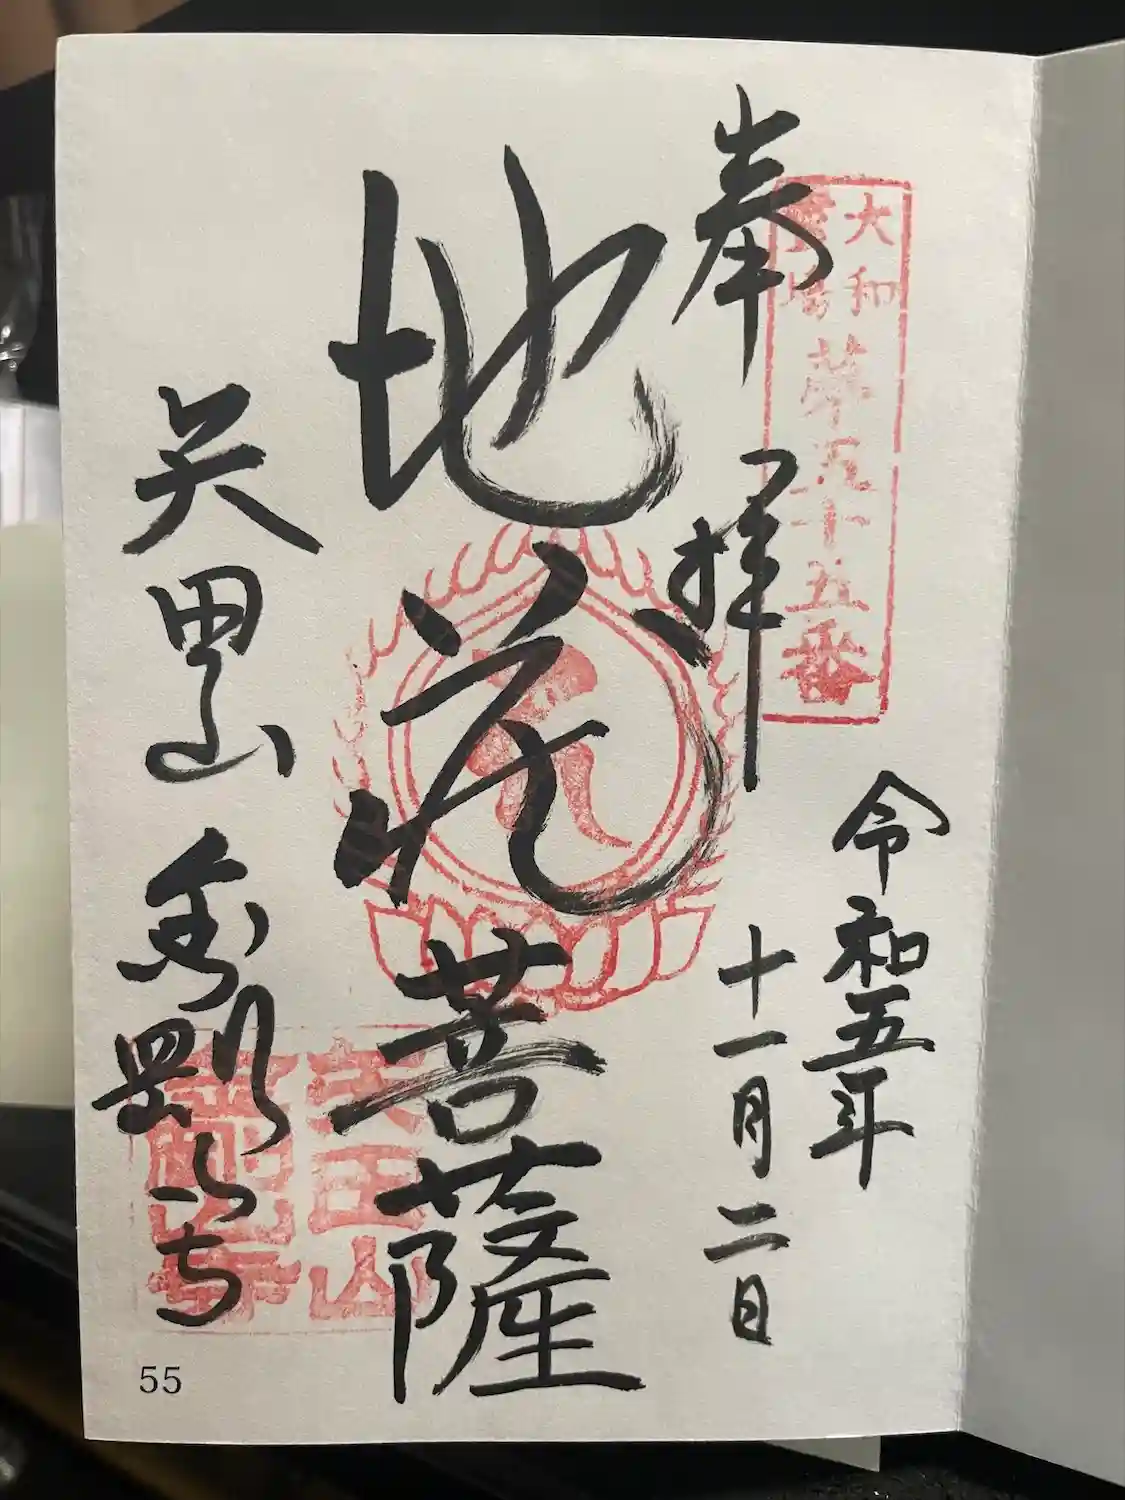 奉拝
大和
霊場
第五十五番
令和五年
十一月二日
地蔵菩薩
矢田山金剛山寺
矢田山
55